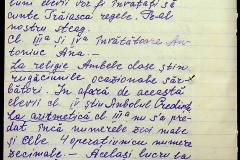 luni elevii vor fi învățați să
cunte Trăiască regele. Pe al
nostru steag.
cl. IIIa și IV a învățătoare An-
toniuc Ana. -
La religie Ambele clase știu
rugăciunile ocazionale săr-
bători. În afară de aceasta
elevii cl. IV știu Simbolul Credinței
La aritmetică cl. IIIa nu s'a pre-
dat încă numerele zeci male
și cele 4 operațiuni cu numere
zecimale. - Același lucru la